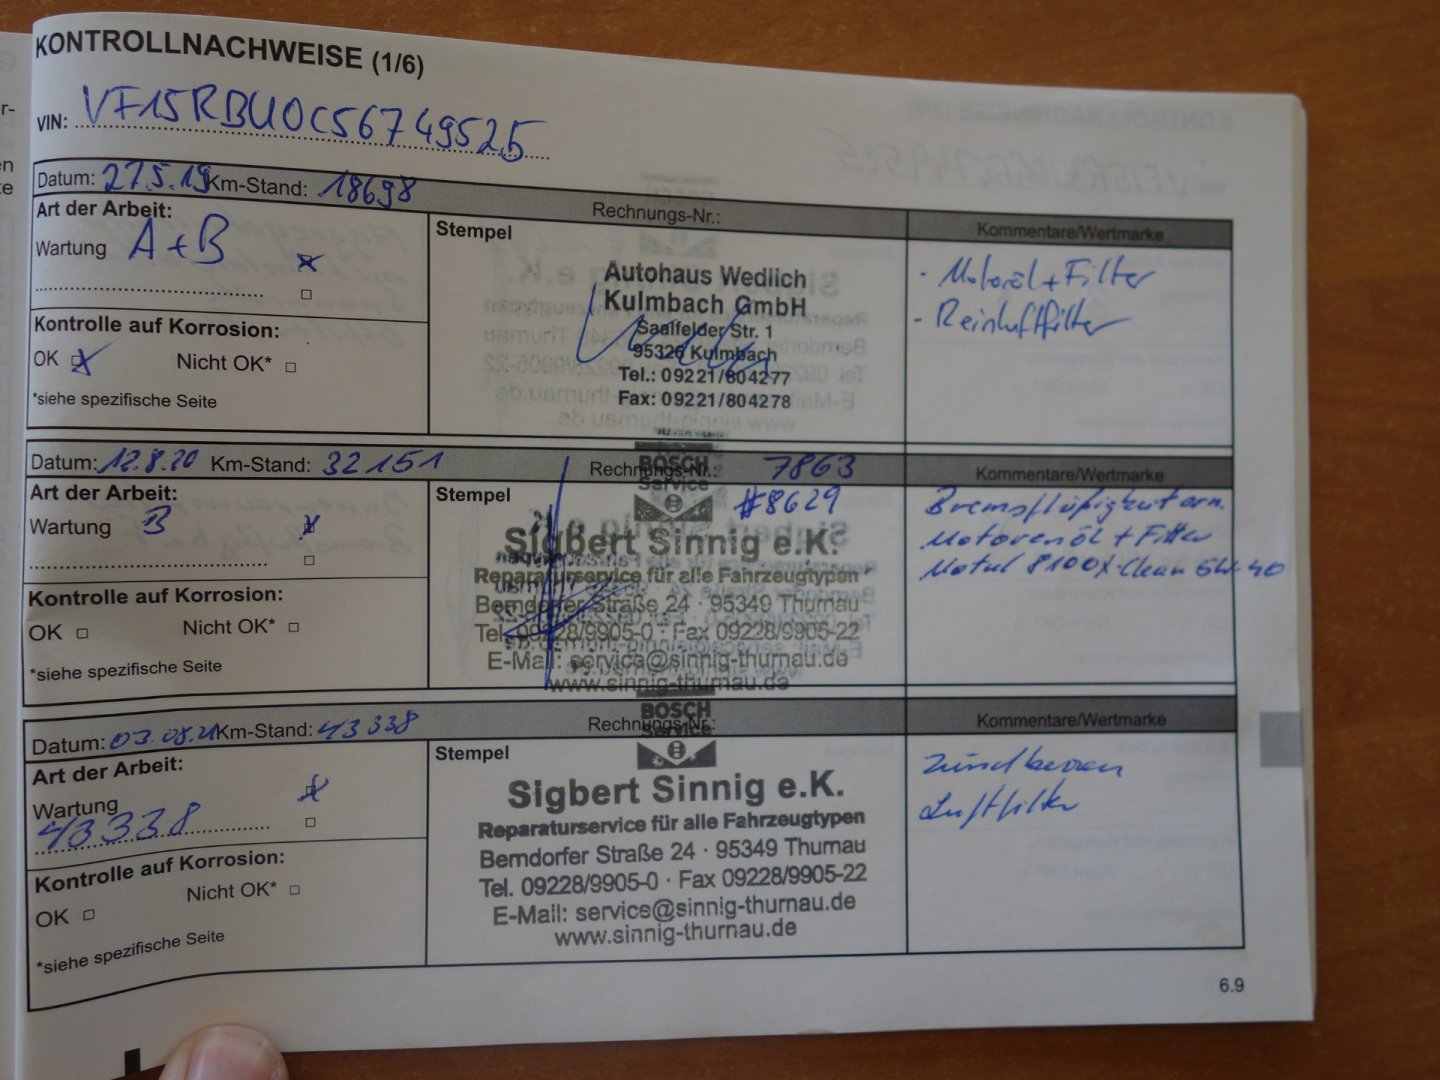 KONTROLLNACHWEISE (1/6)
VIN: VF15RBU0C56749525
Datum: 27.5.19 Km-Stand: 18698 Rechnungs-Nr.:
Art der Arbeit:
Wartung A+B
Kontrolle auf Korrosion:
OK Nicht OK*
*siehe spezifische Seite
Stempel
Autohaus Wedlich
Kulmbach GmbH
Saalfelder Str. 1
95326 Kulmbach
Tel.: 09221/804277
Fax: 09221/804278
Kommentare/Wertmarke
- Motoröl + Filter
- Reinluftfilter
Datum: 12.8.20 Km-Stand: 32151 Rechnungs-Nr.: 7863
Art der Arbeit:
Wartung B
Kontrolle auf Korrosion:
OK Nicht OK*
*siehe spezifische Seite
Stempel
#8629
BOSCH
Service
Sigbert Sinnig e.K.
Reparaturservice für alle Fahrzeugtypen
Berndorfer Straße 24 · 95349 Thurnau
Tel. 09228/9905-0 · Fax 09228/9905-22
E-Mail: service@sinnig-thurnau.de
www.sinnig-thurnau.de
Kommentare/Wertmarke
Bremsflüßigkeit ern.
Motorenöl + Filter
Motul 8100 X-Clean 5W-40
Datum: 03.08.21 Km-Stand: 43338 Rechnungs-Nr.:
Art der Arbeit:
Wartung
43338
Kontrolle auf Korrosion:
OK Nicht OK*
*siehe spezifische Seite
Stempel
BOSCH
Service
Sigbert Sinnig e.K.
Reparaturservice für alle Fahrzeugtypen
Berndorfer Straße 24 · 95349 Thurnau
Tel. 09228/9905-0 · Fax 09228/9905-22
E-Mail: service@sinnig-thurnau.de
www.sinnig-thurnau.de
Kommentare/Wertmarke
Zündkerzen
Luftfilter
6.9